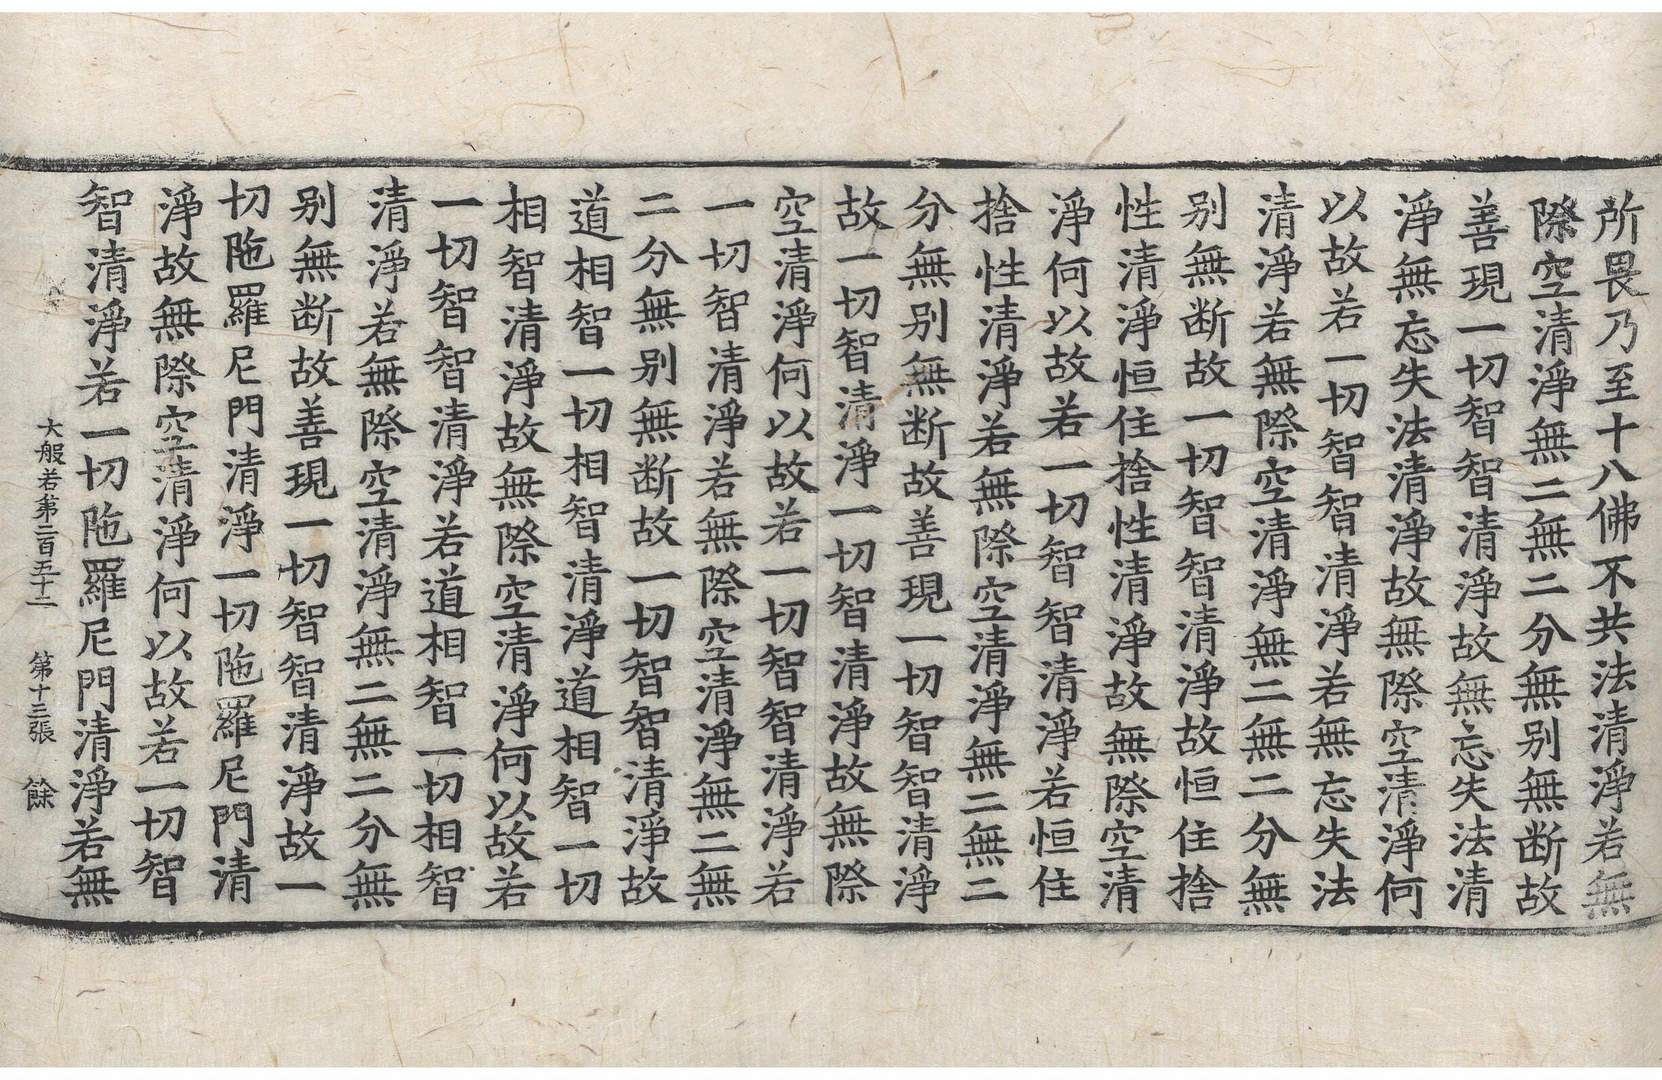 所畏乃至十八佛不共法清淨若無
際空清淨無二無二分無别無断故
善現一切智智清淨故無忘失法清
淨無忘失法清淨故無際空清淨何
以故若一切智智清淨若無忘失法
清淨若無際空清淨無二無二分無
别無断故一切智智清淨故恒住捨
性清淨恒住捨性清淨故無際空清
淨何以故若一切智智清淨若恒住
捨性清淨若無際空清淨無二無二
分無别無断故善現一切智智清淨
故一切智清淨一切智清淨故無際
空清淨何以故若一切智智清淨若
一切智清淨若無際空清淨無二無
二分無别無断故一切智智清淨故
道相智一切相智清淨道相智一切
相智清淨故無際空清淨何以故若
一切智智清淨若道相智一切相智
清淨若無際空清淨無二無二分無
别無断故善現一切智智清淨故一
切陁羅尼門清淨一切陁羅尼門清
淨故無際空清淨何以故若一切智
智清淨若一切陁羅尼門清淨若無
大般若第二百五十二 第十三張 餘